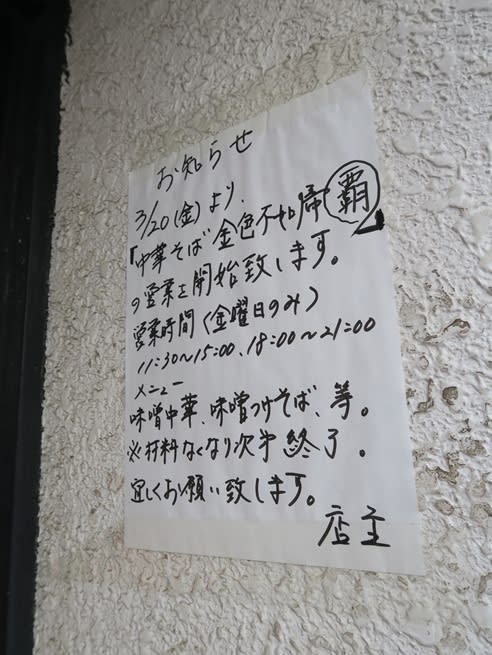 お知らせ
3/20(金)より、
「中華そば 金色不如帰 覇」
の営業を開始致します。
営業時間(金曜日のみ)
11:30〜15:00、18:00〜21:00
メニュー
味噌中華、味噌つけそば、等。
※材料なくなり次才終了。
宜しくお願い致します。
店主